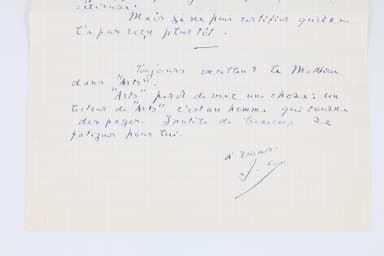 Mais je ne puis certifier qu'il ne
l'a pas reçu plus tôt.
Toujours excellent le Mathieu
dans "Arts".
"Arts" perd de vue une chose : un
lecteur de "Arts" c'est un homme qui tourne
des pages. Inutile de beaucoup se
fatiguer pour lui.
à vous